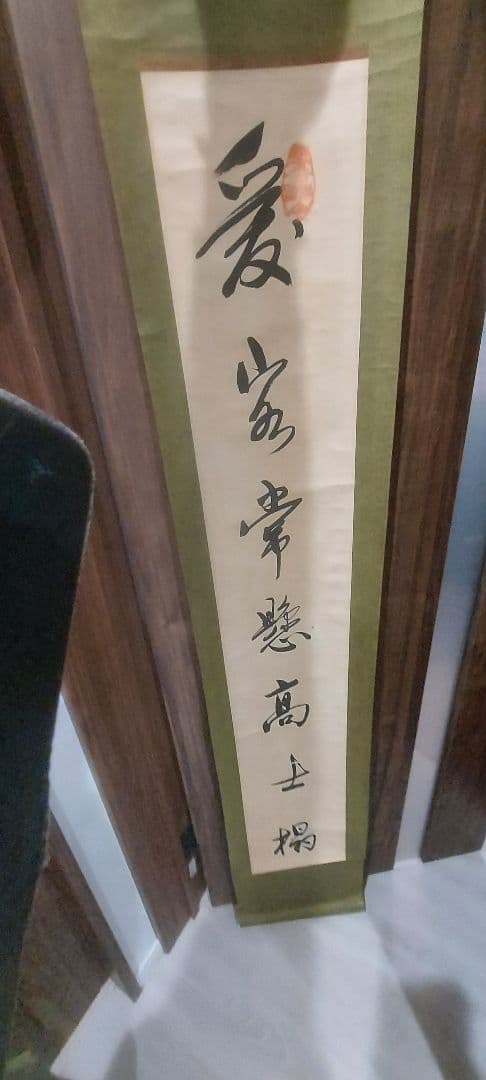 愛客常懸高士榻